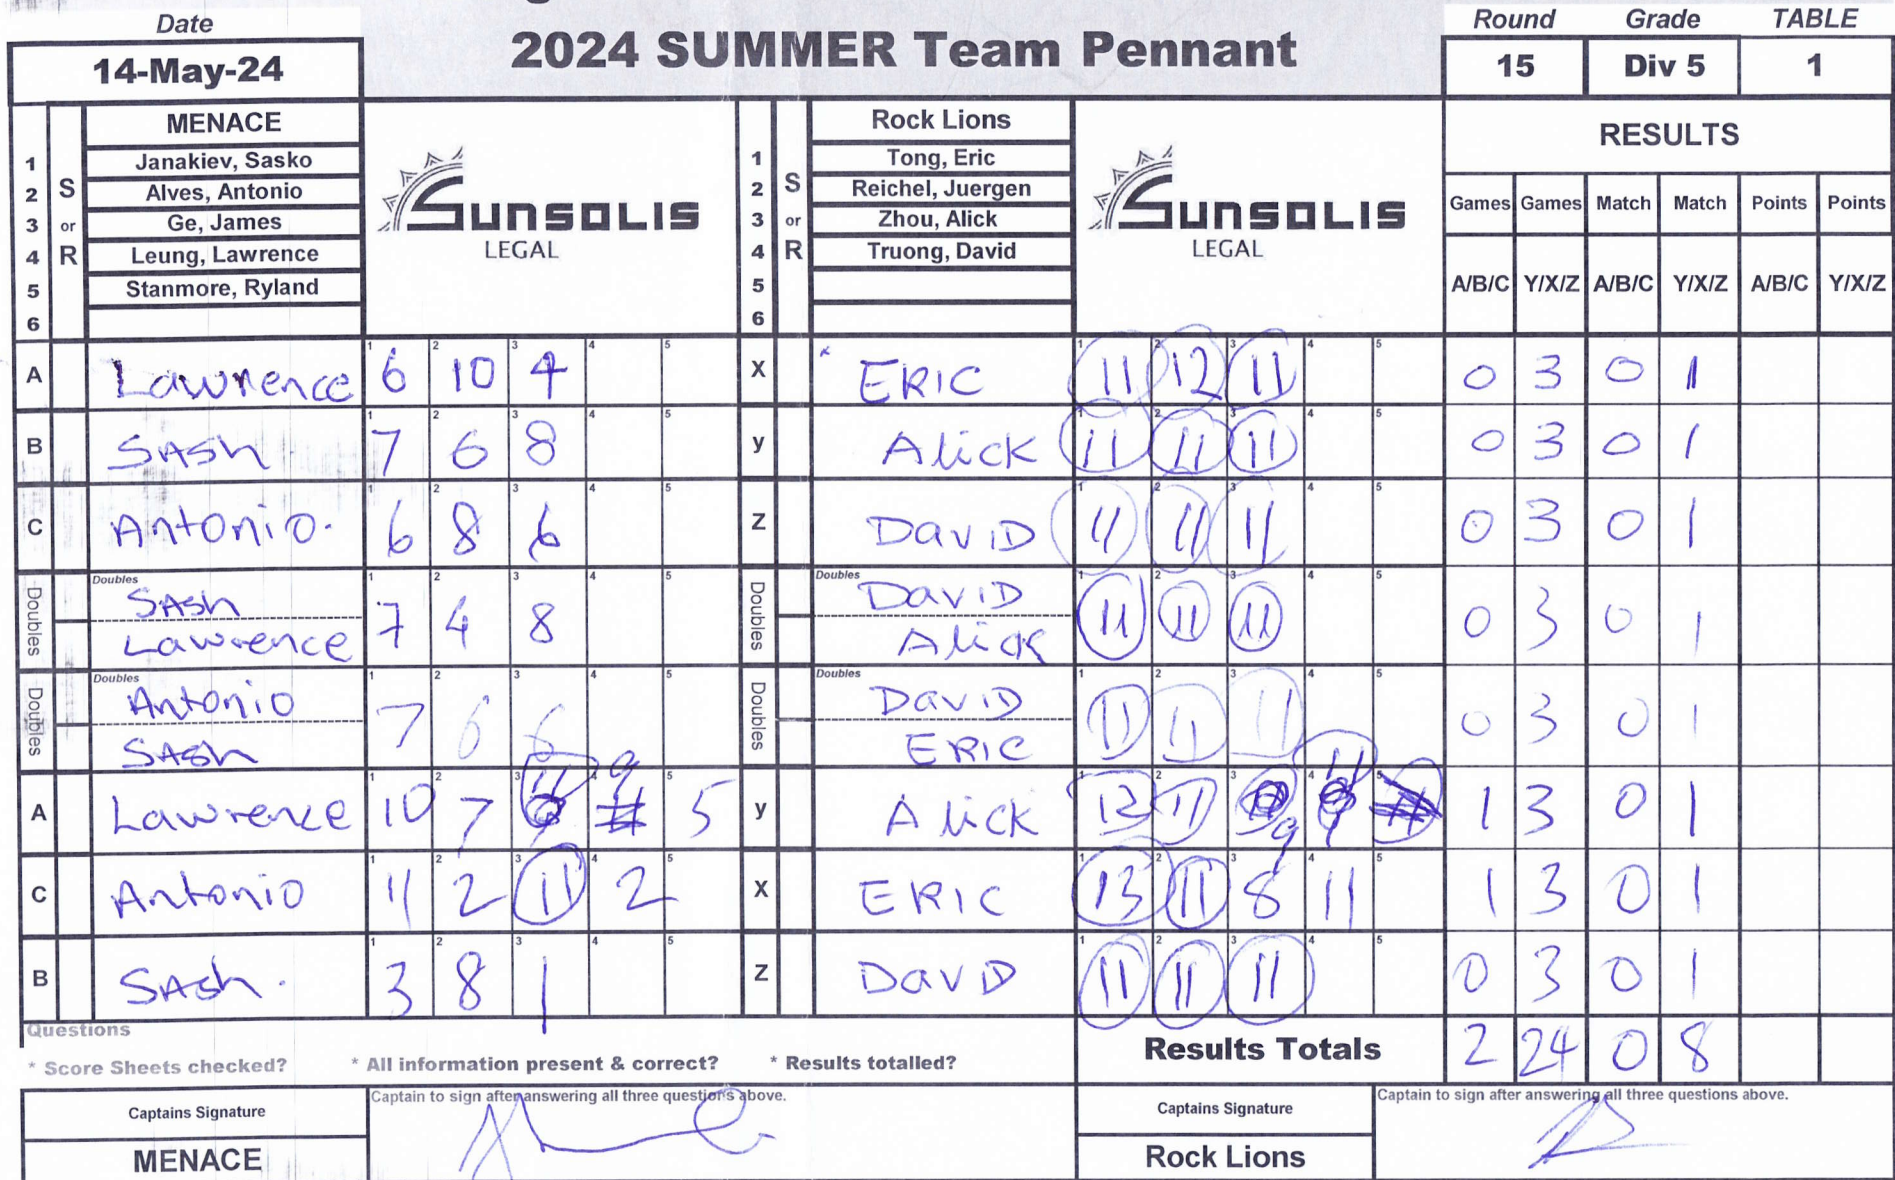 Date
14-May-24
2024 SUMMER Team Pennant
Round Grade TABLE
15 Div 5 1
MENACE
1 Janakiev, Sasko
2 Alves, Antonio
3 Ge, James
4 Leung, Lawrence
5 Stanmore, Ryland
6
S or R
SUNSOLIS
LEGAL
Rock Lions
1 Tong, Eric
2 Reichel, Juergen
3 Zhou, Alick
4 Truong, David
5
6
S or R
SUNSOLIS
LEGAL
RESULTS
Games Games Match Match Points Points
A/B/C Y/X/Z A/B/C Y/X/Z A/B/C Y/X/Z
A Lawrence 6 10 4 X ERIC 11 12 11 0 3 0 1
B SASh 7 6 8 y Alick 11 11 11 0 3 0 1
C Antonio. 6 8 6 Z DaviD 11 11 11 0 3 0 1
Doubles SASh Lawrence 7 4 8 Doubles DaviD Alick 11 11 11 0 3 0 1
Doubles Antonio SASh 7 6 6 Doubles DaviD ERIC 11 11 11 0 3 0 1
A Lawrence 10 7 11 9 5 y Alick 12 11 9 11 1 3 0 1
C Antonio 11 2 11 2 X ERIC 13 11 8 11 1 3 0 1
B SASh. 3 8 1 Z DaviD 11 11 11 0 3 0 1
Questions
* Score Sheets checked? * All information present & correct? * Results totalled?
Results Totals 2 24 0 8
Captains Signature
Captain to sign after answering all three questions above.
MENACE
Captains Signature
Captain to sign after answering all three questions above.
Rock Lions